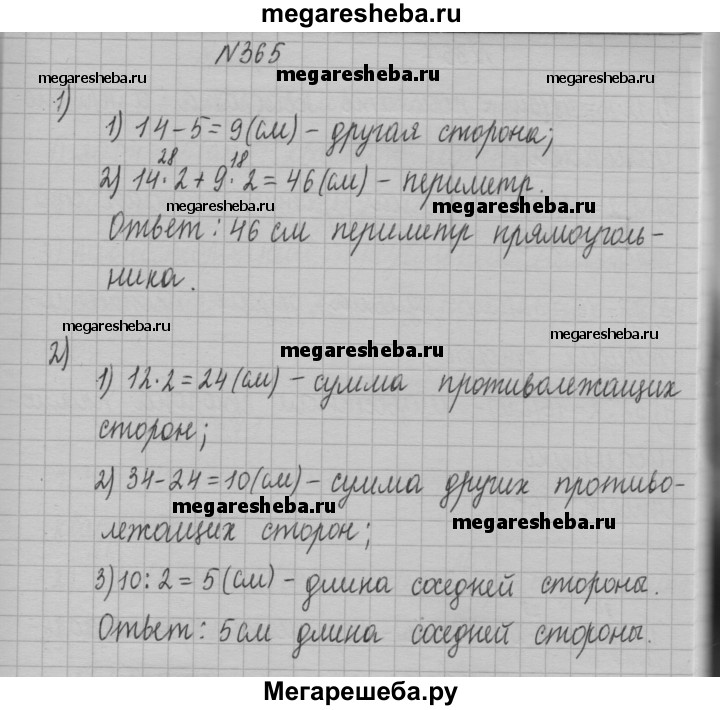 megaresheba.ru
N365
megaresheba.ru megaresheba.ru megaresheba.ru
1)
1) 14-5=9(см) - другая сторона;
28 18
2) 14·2+9·2=46(см) - периметр.
megaresheba.ru megaresheba.ru
Ответ: 46 см периметр прямоуголь-
ника.
megaresheba.ru megaresheba.ru
2) megaresheba.ru
1) 12·2=24(см) - сумма противолежащих
сторон;
2) 34-24=10(см) - сумма других противо-
megaresheba.ru megaresheba.ru
лежащих сторон;
3) 10:2=5(см) - длина соседней стороны.
Ответ: 5см длина соседней стороны.
Мегарешеба.ру